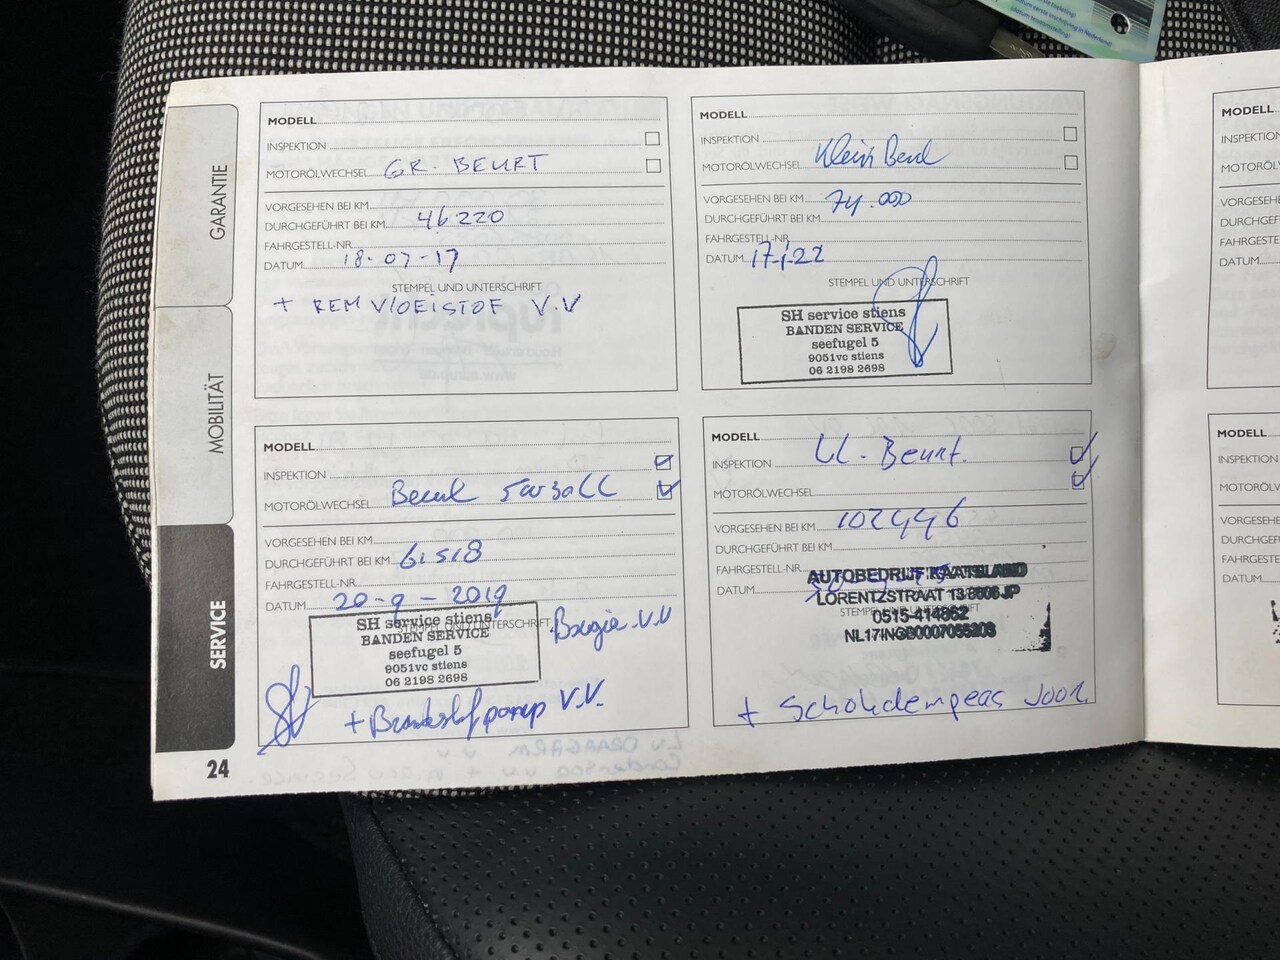 GARANTIE
MOBILITÄT
SERVICE
24
MODELL
INSPEKTION
MOTORÖLWECHSEL GR. BEURT
VORGESEHEN BEI KM
DURCHGEFÜHRT BEI KM 46220
FAHRGESTELL-NR.
DATUM 18-07-17
STEMPEL UND UNTERSCHRIFT
+ REM VLOEISTOF V.V
MODELL
INSPEKTION
MOTORÖLWECHSEL Klein Beurt
VORGESEHEN BEI KM 74.000
DURCHGEFÜHRT BEI KM
FAHRGESTELL-NR.
DATUM 17-1-22
STEMPEL UND UNTERSCHRIFT
SH service stiens
BANDEN SERVICE
seefugel 5
9051vc stiens
06 2198 2698
MODELL
INSPEKTION
MOTORÖLWECHSEL Beurt 5w30LL
VORGESEHEN BEI KM
DURCHGEFÜHRT BEI KM 61518
FAHRGESTELL-NR.
DATUM 20-9-2019
STEMPEL UND UNTERSCHRIFT
SH service stiens
BANDEN SERVICE
seefugel 5
9051vc stiens
06 2198 2698
Bougie V.V
+ Brandstofpomp V.V.
MODELL
INSPEKTION Kl. Beurt.
MOTORÖLWECHSEL
VORGESEHEN BEI KM 102446
DURCHGEFÜHRT BEI KM
FAHRGESTELL-NR.
DATUM
STEMPEL UND UNTERSCHRIFT
AUTOBEDRIJF KAATSBAND
LORENTZSTRAAT 13 8606 JP
0515-414862
+ Schokdempers voor.
MODELL
INSPEKTION
MOTORÖL
VORGESEHE
DURCHGEF
FAHRGESTE
DATUM
MODELL
INSPEKTION
MOTORÖLW
VORGESEHE
DURCHGEF
FAHRGESTE
DATUM